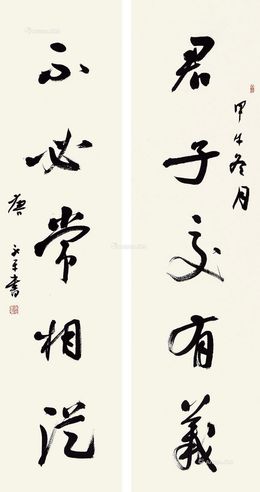 君子交有義
甲午冬月
不必常相從
唐
書